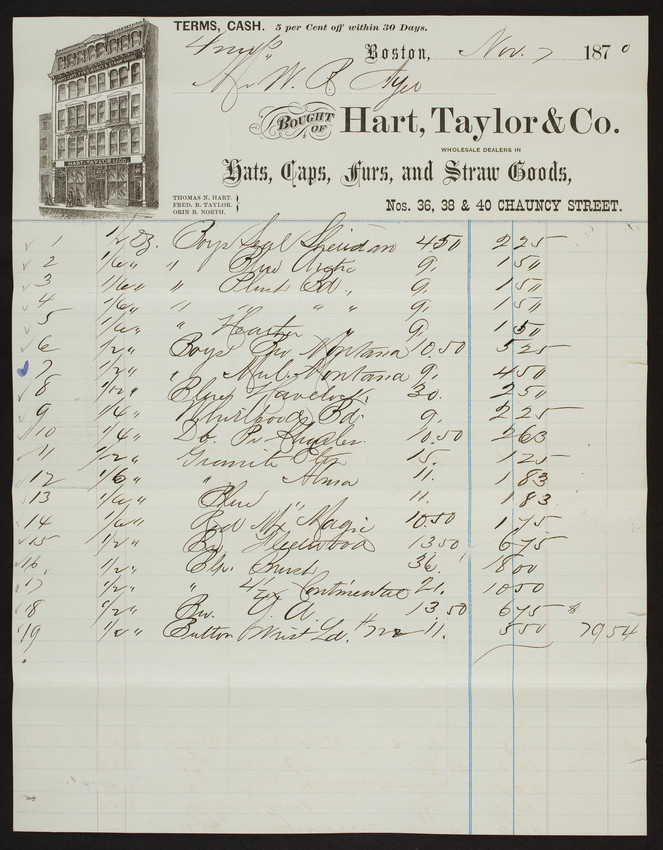 TERMS, CASH. 5 per Cent off within 30 Days.
Boston, Nov. 7 1870
Mr W. P. Ayer
BOUGHT OF Hart, Taylor & Co.
WHOLESALE DEALERS IN
Hats, Caps, Furs, and Straw Goods,
THOMAS N. HART.
FRED. B. TAYLOR.
ORIN B. NORTH.
Nos. 36, 38 & 40 CHAUNCY STREET.
HART, TAYLOR & CO.
1 1/2 Dz. Boys Seal Sheridan 4 50 2 25
2 1/6 " " Blue 9. 1 50
3 1/6 " " Plush Bd., 9. 1 50
4 1/6 " " " " 9. 1 50
5 1/6 " " " 9. 1 50
6 1/2 " Boys Bw Montana 10.50 5 25
7 1/2 " " Mulb Montana 9. 4 50
8 1/12 " Havelock 30. 2 50
9 1/4 " Bd. 9. 2 25
10 1/4 " Do. 10.50 2 63
11 1/12 " Granite 15. 1 25
12 1/6 " " Alma 11. 1 83
13 1/6 " Blue " 11. 1 83
14 1/6 " Red Mx Magic 10.50 1 75
15 1/2 " 13 50 6 75
16 1/2 " Brush 36. 18 00
17 1/2 " " 4/4 Continental 21. 10 50
18 1/2 " Bw. 13 50 6 75
19 1/2 " Button Wrist Ld. 11. 5 50 79 54